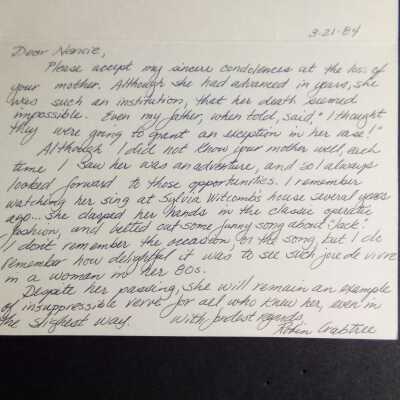 3-21-84
Dear Nancie,
Please accept my sincere condolences at the loss of
your mother. Although she had advanced in years, she
was such an institution, that her death seemed
impossible. Even my father, when told, said, "I thought
they were going to grant an exception in her case!"
Although I did not know your mother well, each
time I saw her was an adventure, and so I always
looked forward to those opportunities. I remember
watching her sing at Sylvia Witcombs house several years
ago... she clasped her hands in the classic operatic
fashion, and belted out some funny song about "Jack".
I don't remember the occasion or the song, but I do
remember how delightful it was to see such joie de vivre
in a woman in her 80s.
Despite her passing, she will remain an example
of insuppressible verve for all who knew her, even in
the slightest way. With fondest regards,
Robin Crabtree